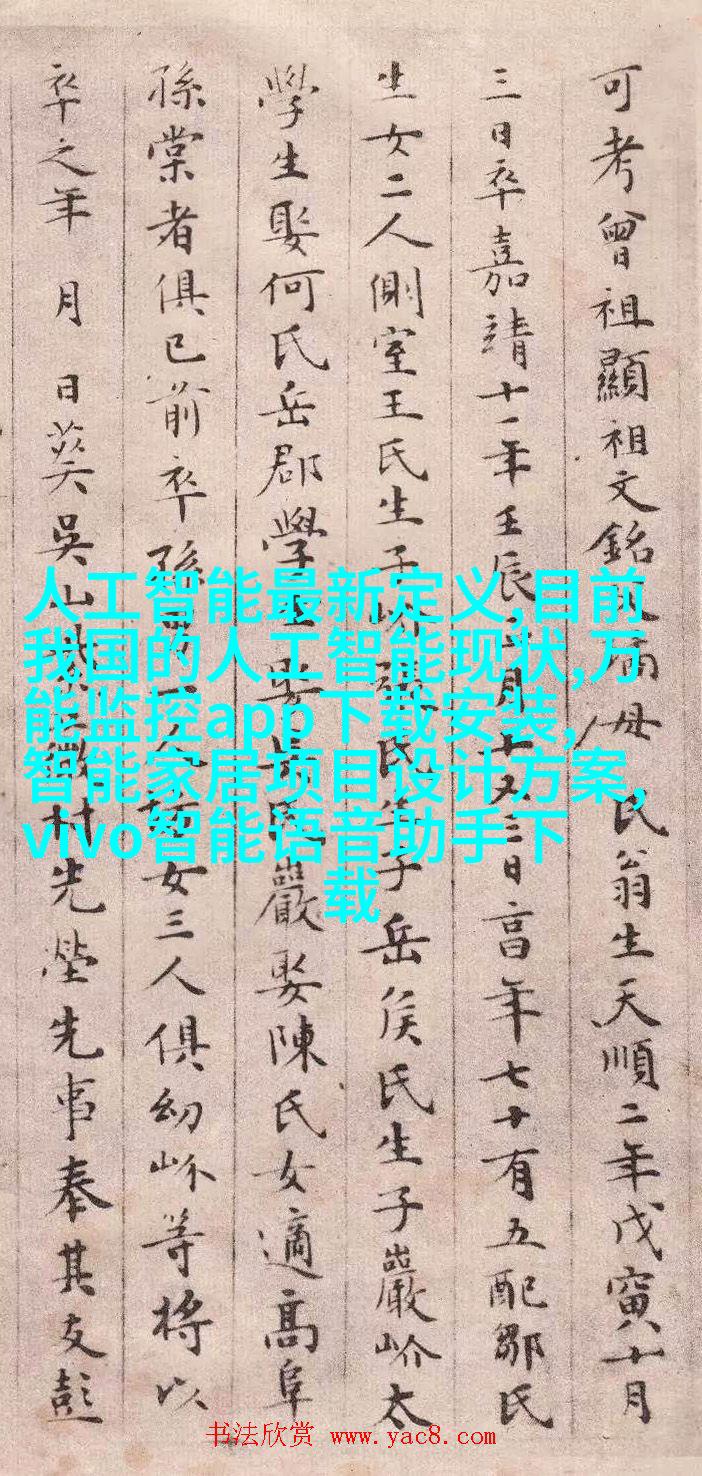 可考曾祖顯祖文銘母 氏翁生天順二年戊寅十月
三日卒嘉靖十一年壬辰月十又三日亯年七十有五配鄒氏
生女二人側室王氏生子岕氏生子岳侯氏生子巖岕太
學生娶何氏岳郡學生娶氏巖娶陳氏女適髙阜
孫棠者俱已前卒孫女三人俱幼岕等將以
卒之年 月 日葬吳山村先塋先事奉其友彭
人工智能最新定义,目前
我国的人工智能现状,万
能监控app下载安装,
智能家居项目设计方案,
vivo智能语音助手下
载
书法欣赏 www.yac8.com